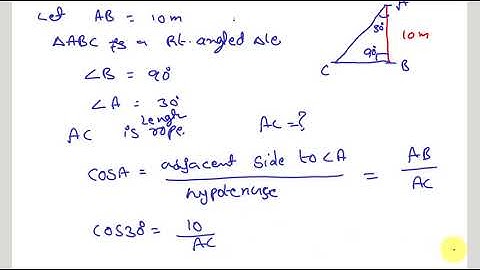 Let AB = 10m
△ABC is a Rt. angled △le
∠B = 90°
∠A = 30°
AC is Length rope. AC = ?
COSA = adjacent side to ∠A / hypotenuse = AB / AC
COS30 = 10 / AC
A
30°
10m
90°
C
B